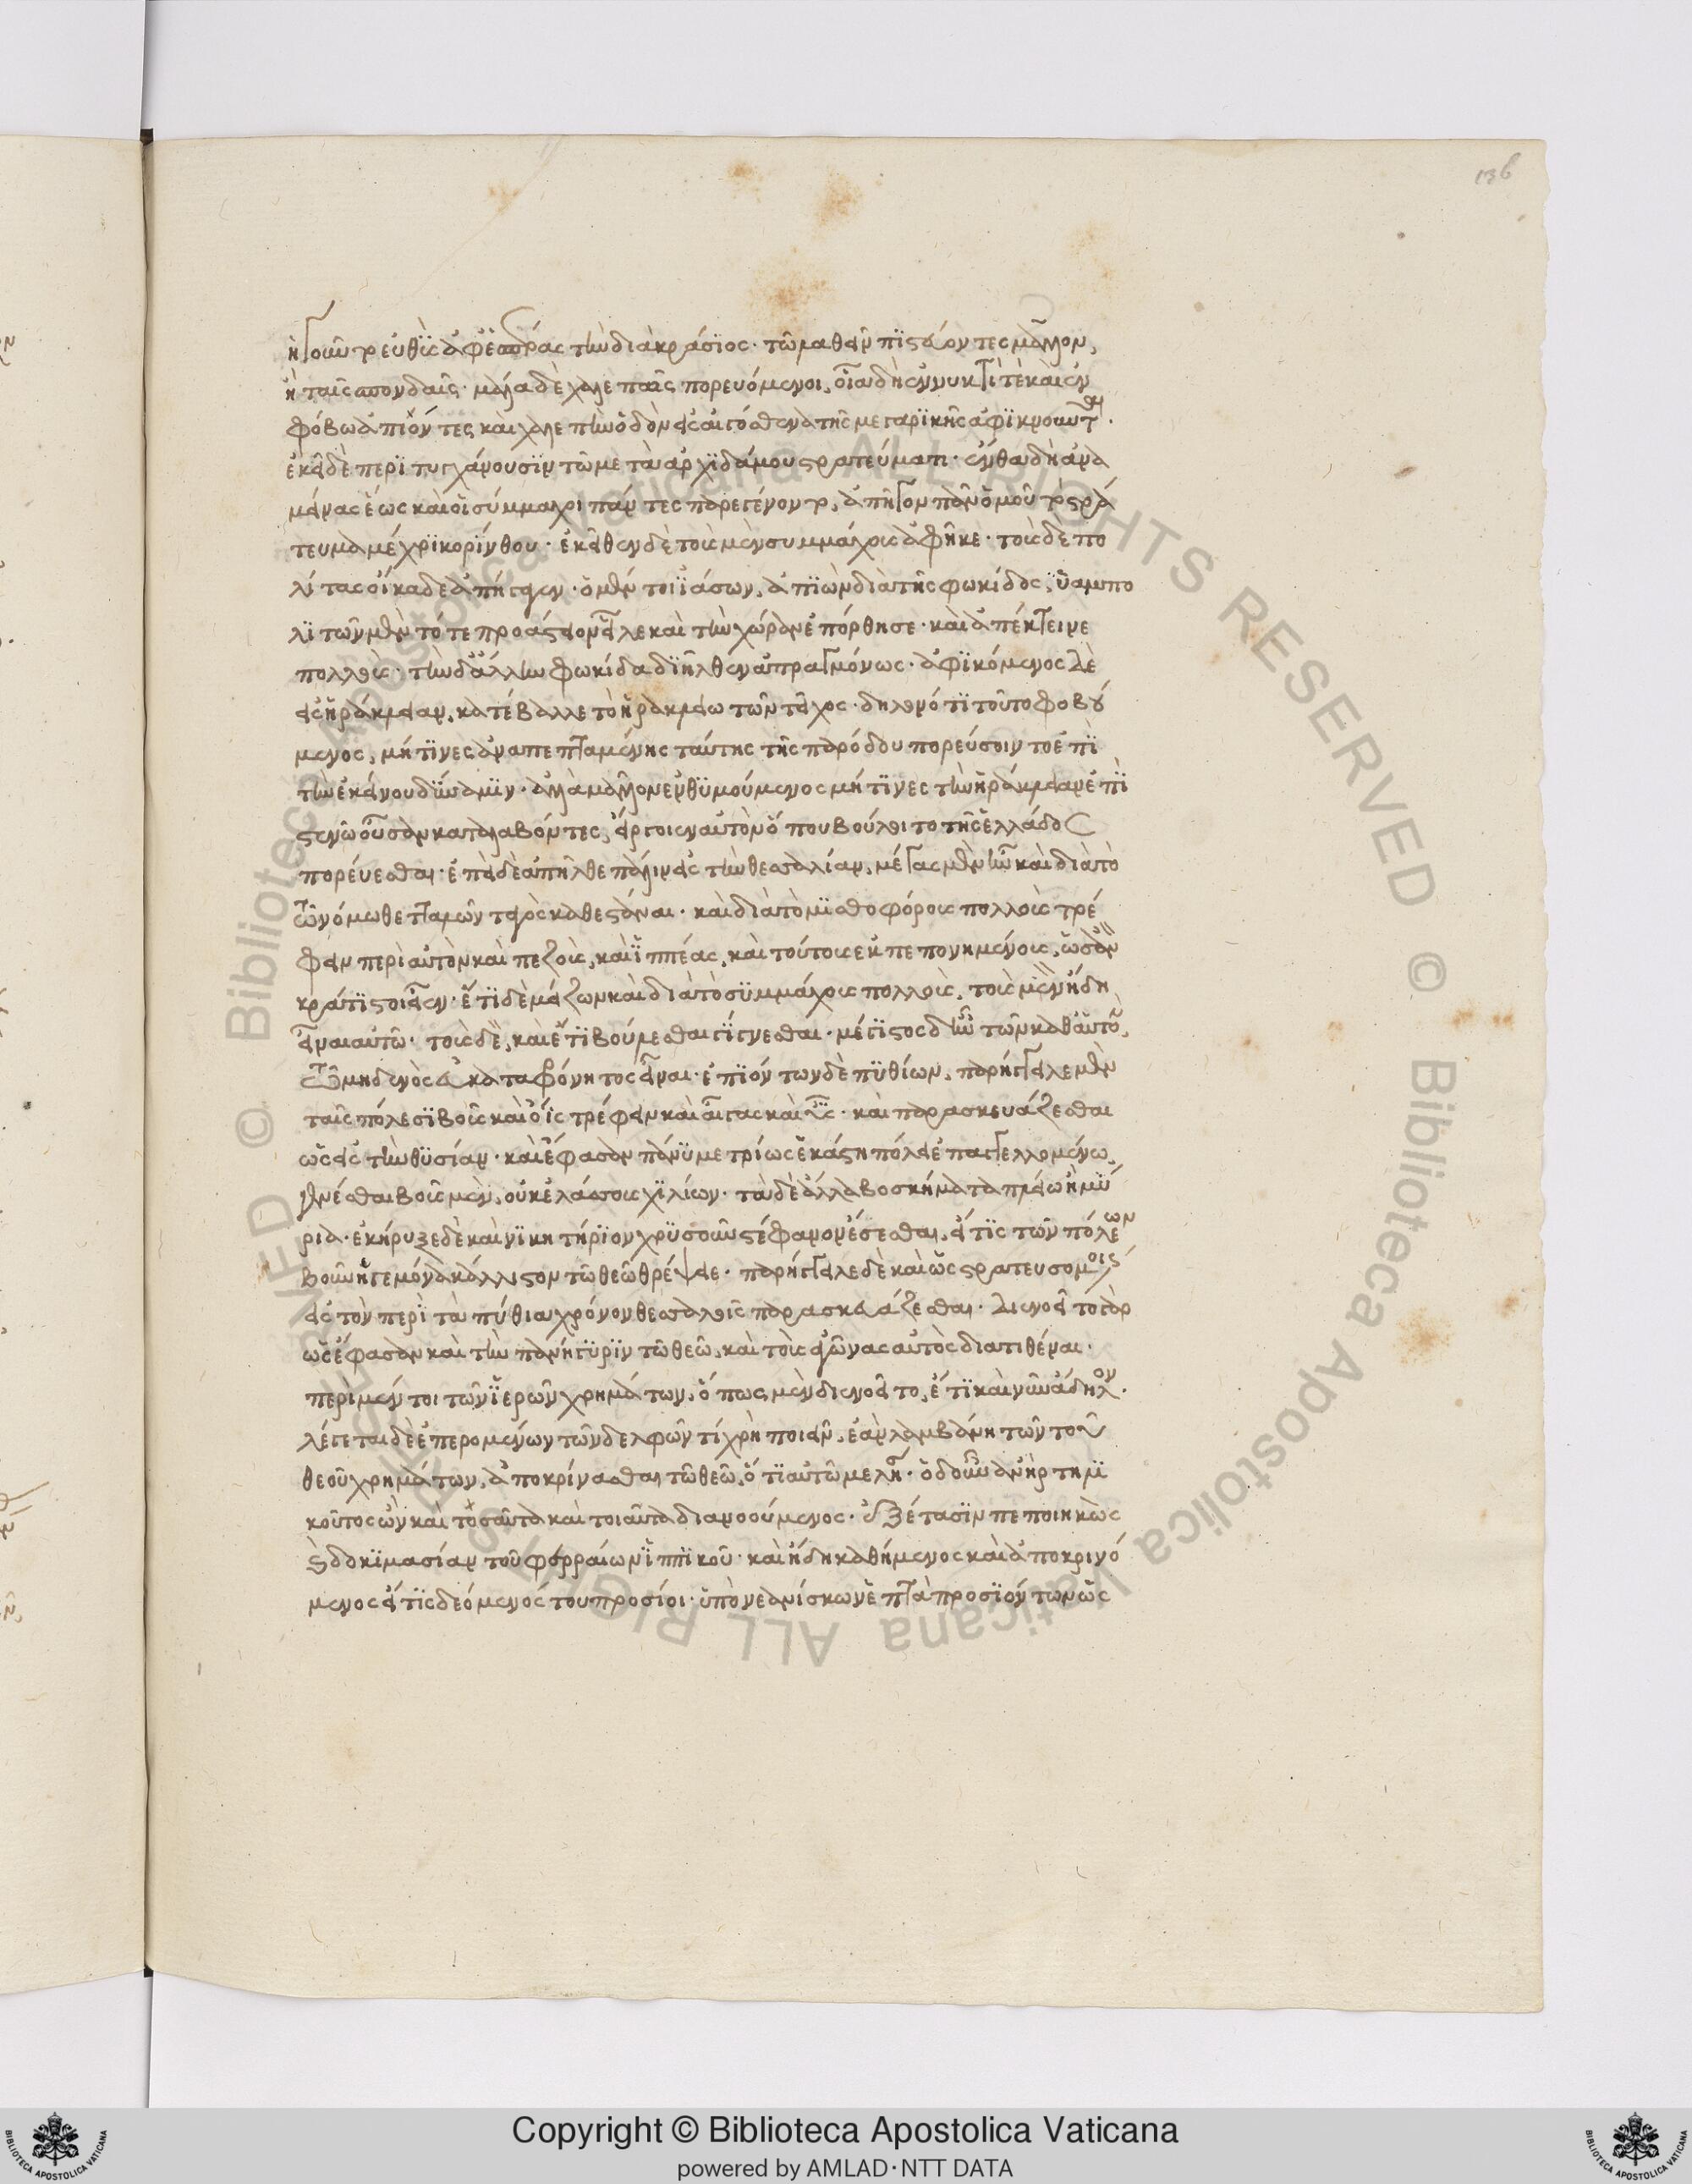 ἡγοῦντο εὐθὺς ἀφ' ἑσπέρας τὴν διὰ κράσϊος· τῷ μαθεῖν πϊστεύοντες μᾶλλον,
ἢ ταῖς σπονδαῖς· μάλα δὲ χαλεπῶς πορευόμενοι, οἷα δὴ ἐν νυκτί τὲ καὶ ἐν
φόβω ἀπιόντες καὶ χαλεπὴν ὁδὸν εἰς αἰγόσθενα τῆς μεγαρϊκῆς ἀφϊκνοῦνται.
ἐκεῖ δὲ περϊτυγχάνουσϊν τῷ μετὰ ἀρχϊδάμου στρατεύματι· ἔνθα δὴ ἀνα
μείνας ἕως καὶ οἱ σύμμαχοι πάντες παρεγένοντο, ἀπῆγον πᾶν ὁμοῦ τὸ στρά
τευμα μέχρϊ κορίνθου· ἐκεῖθεν δὲ τοὺς μὲν συμμάχους ἀφῆκε· τοὺς δὲ πο
λίτας οἴκαδε ἀπήγαγεν· ὁ μέντοι ϊάσων, ἀπϊὼν διὰ τῆς φωκίδος, ϋαμπο
λϊτῶν μὲν τό τε προάστειον εἷλε καὶ τὴν χώραν ἐπόρθησε· καὶ ἀπέκτεινε
πολλούς· τὴν δ' ἄλλην φωκίδα διῆλθεν ἀπραγμόνως· ἀφϊκόμενος δὲ
εἰς ἡράκλειαν, κατέβαλλε τὸ ἡρακλεωτῶν τεῖχος· δηλονότϊ τοῦτο φοβού
μενος, μή τϊνες ἀναπεπταμένης ταύτης τῆς παρόδου πορεύσοιντο ἐπϊ
τὴν ἐκείνου δύναμϊν· ἀλλὰ μᾶλλον ἐνθϋμούμενος μή τϊνες τὴν ἡράκλειαν ἐπϊ
στενῷ οὖσαν καταλαβόντες, εἴργοιεν αὐτὸν ὅπου βούλοιτο τῆς ἑλλάδος
πορεύεσθαι· ἐπεὶ δὲ ἀπῆλθε πάλιν εἰς τὴν θεσσαλίαν, μέγας μὲν ἦν καὶ διὰ τὸ
τῶ νόμω θετταλῶν ταγὸς καθεστάναι· καὶ διὰ τὸ μϊσθοφόρους πολλοὺς τρέ
φειν περὶ αὐτὸν καὶ πεζοὺς, καὶ ἱππέας, καὶ τούτους ἐκπεπονημένους, ὡς ἂν
κράτϊστοι εἶεν· ἔτϊ δὲ μείζων καὶ διὰ τὸ συμμάχους πολλοὺς, τοὺς μὲν ἤδη
εἶναι αὐτῶ· τοὺς δὲ, καὶ ἔτϊ βούλεσθαι γίγνεσθαι· μέγϊστος δ' ἦν τῶν καθ' αὑτὸν,
τῶ μηδενὸς εὐκαταφρόνητος εἶναι· ἐπϊόντων δὲ πϋθίων, παρήγγειλε μὲν
ταῖς πόλεσϊ βοῦς καὶ ὄϊς τρέφειν καὶ αἶγας καὶ ὗς· καὶ παρασκευάζεσθαι
ὡς εἰς τὴν θϋσίαν· καὶ ἔφασαν πάνϋ μετρίως ἑκάστη πόλει ἐπαγγελλομένω,
γενέσθαι βοῦς μὲν, οὐκ ἐλάσσους χϊλίων· τὰ δὲ ἄλλα βοσκήματα πλείω ἢ μϋ
ρια· ἐκήρυξε δὲ καὶ νϊκητήρϊον χρϋσοῦν στέφανον ἔσεσθαι, εἴ τϊς τῶν πόλεων
βοῦν ἡγεμόνα κάλλιστον τῶ θεῶ θρέψειε· παρήγγειλε δὲ καὶ ὡς στρατευσομένοις
εἰς τὸν περὶ τὰ πύθια χρόνον θεσσαλοῖς παρασκευάζεσθαι· διενοεῖτο γὰρ
ὡς ἔφασαν καὶ τὴν πανήγϋρϊν τῶ θεῶ, καὶ τοὺς ἀγῶνας αὐτὸς διατιθέναι·
περὶ μέντοι τῶν ϊερῶν χρημάτων, ὅπως μὲν διενοεῖτο, ἔτϊ καὶ νῦν ἄδηλον.
λέγεται δὲ ἐπερομένων τῶν δελφῶν τί χρὴ ποιεῖν, ἐὰν λαμβάνη τῶν τοῦ
θεοῦ χρημάτων, ἀποκρίνασθαι τῶ θεῶ, ὅτϊ αὐτῶ μελῆ· ὁ δ' οὖν ἀνὴρ τηλϊ
κοῦτος ὢν καὶ τοσαῦτα καὶ τοιαῦτα διανοούμενος· ἐξέτασϊν πεποιηκὼς
καὶ δοκϊμασίαν τοῦ φερραίων ϊππϊκοῦ· καὶ ἤδη καθήμενος καὶ ἀποκρινό
μενος εἴ τϊς δεόμενός του προσίοι· ὑπὸ νεανίσκων ἑπτὰ προσϊόντων ὡς